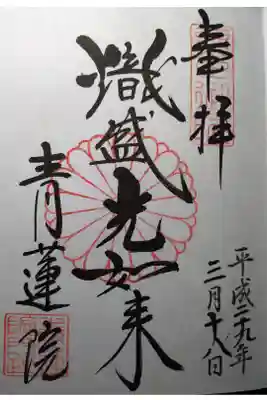 奉拝
平成二十九年
三月十八日
熾盛光如来
青蓮院